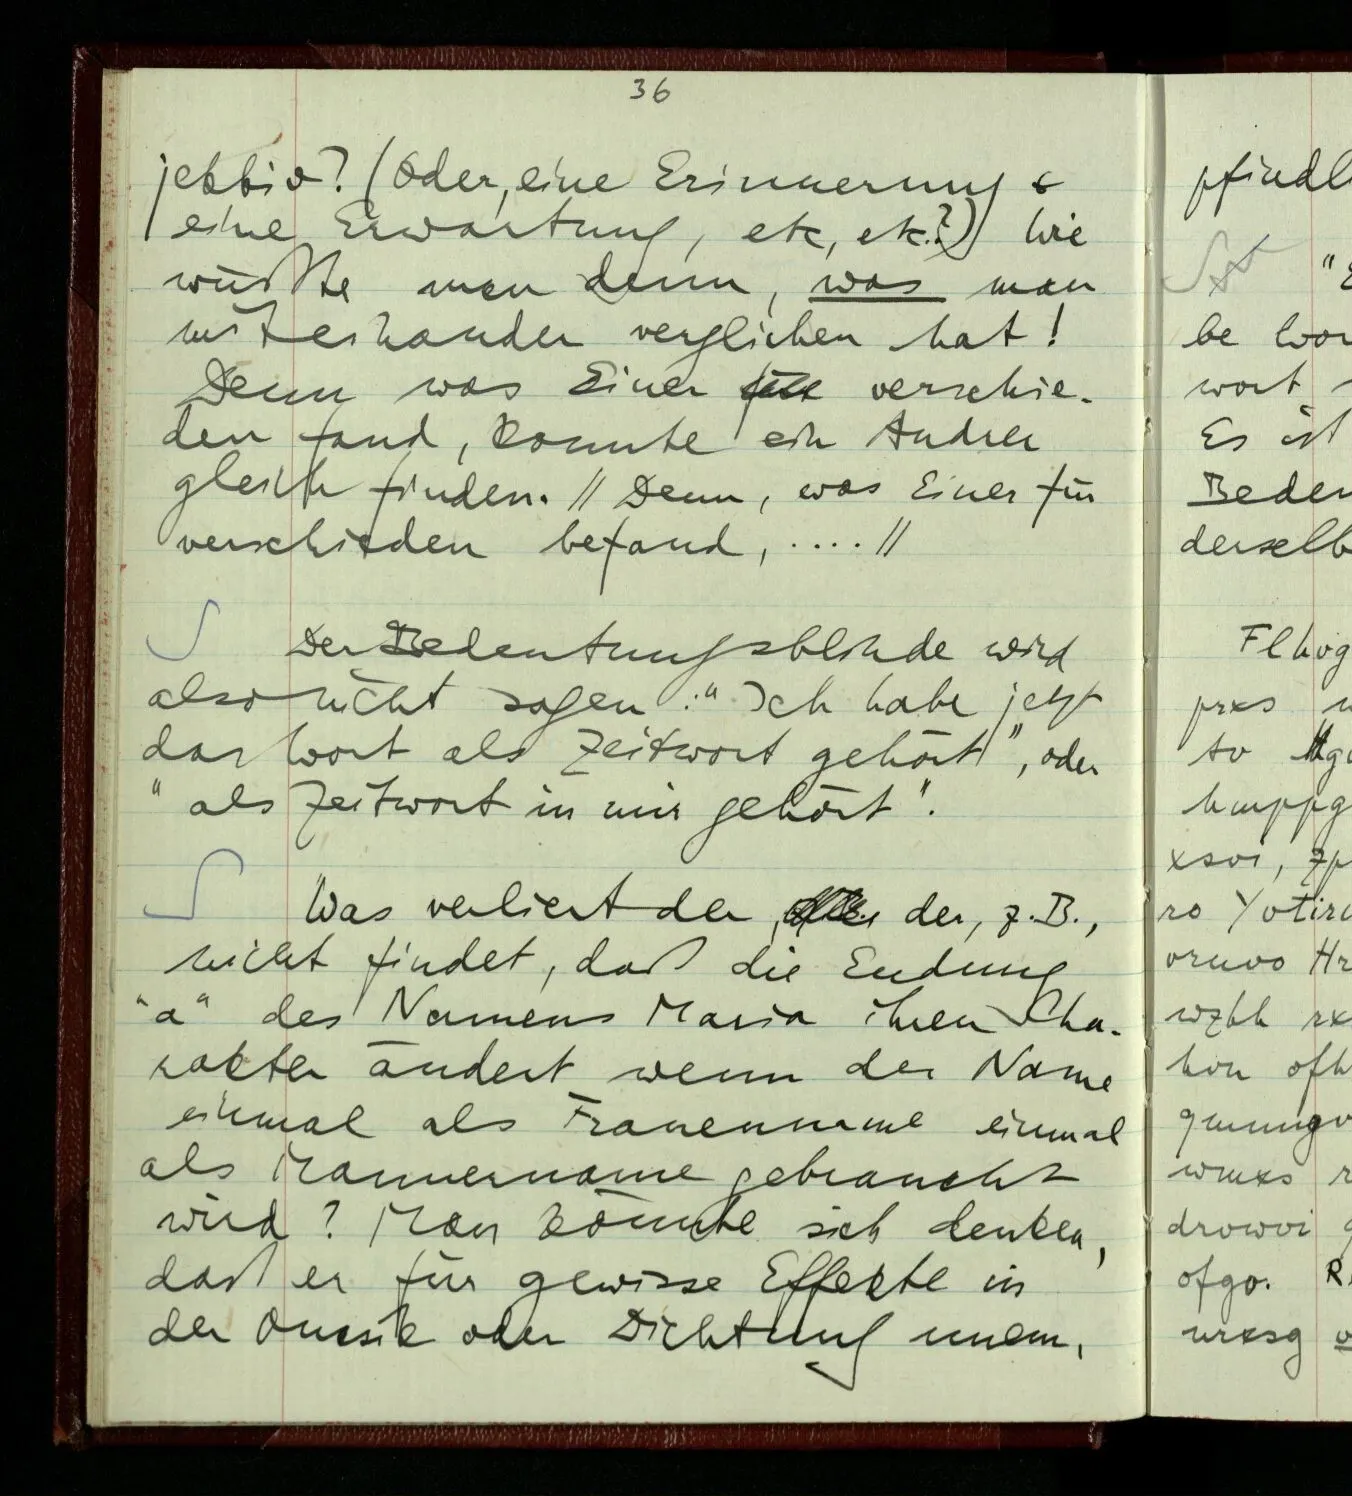 36
jektiv? (Oder, eine Erinnerung &
eine Erwartung, etc, etc.?) Wie
wüßte man denn, was man
miteinander verglichen hat!
Denn was Einer für verschie-
den fand, konnte ein Andrer
gleich finden. // Denn, was Einer für
verschieden befand, .... //
∫ Der Bedeutungsblinde wird
also nicht sagen: "Ich habe jetzt
das Wort als Zeitwort gehört", oder
"als Zeitwort in mir gehört".
∫ Was verliert der, der, z.B.,
nicht findet, daß die Endung
"a" des Namens Maria ihren Cha-
rakter ändert wenn der Name
einmal als Frauenname einmal
als Männername gebraucht
wird? Man könnte sich denken,
daß er für gewisse Effekte in
der Musik oder Dichtung unem-
pfindl
be Wor
wort
Es ist
Beden
derselb
Flhog
prxs
to
hmppg
xsvi,
ro Yotirc
oruvo Hr
wzhh rx
hvn ofh
qmungv
wmxs
drowvi
ofgo.
wrxsg